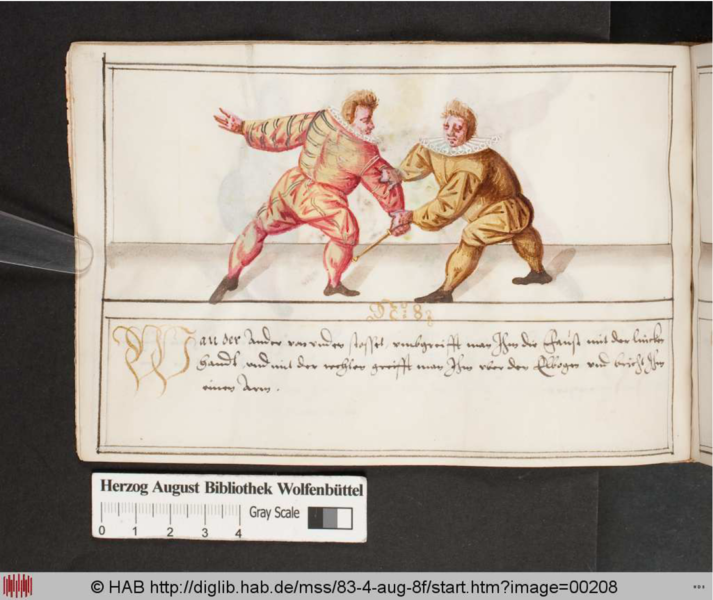 Wan der Ander vor under stosst, umbgreifft man Ihm die Faust mit der lincken
handt, und mit der rechten greifft man Ihm vber den Elbogen und bricht Ihm
einen Arm.
Herzog August Bibliothek Wolfenbüttel
Gray Scale
0 1 2 3 4
© HAB http://diglib.hab.de/mss/83-4-aug-8f/start.htm?image=00208